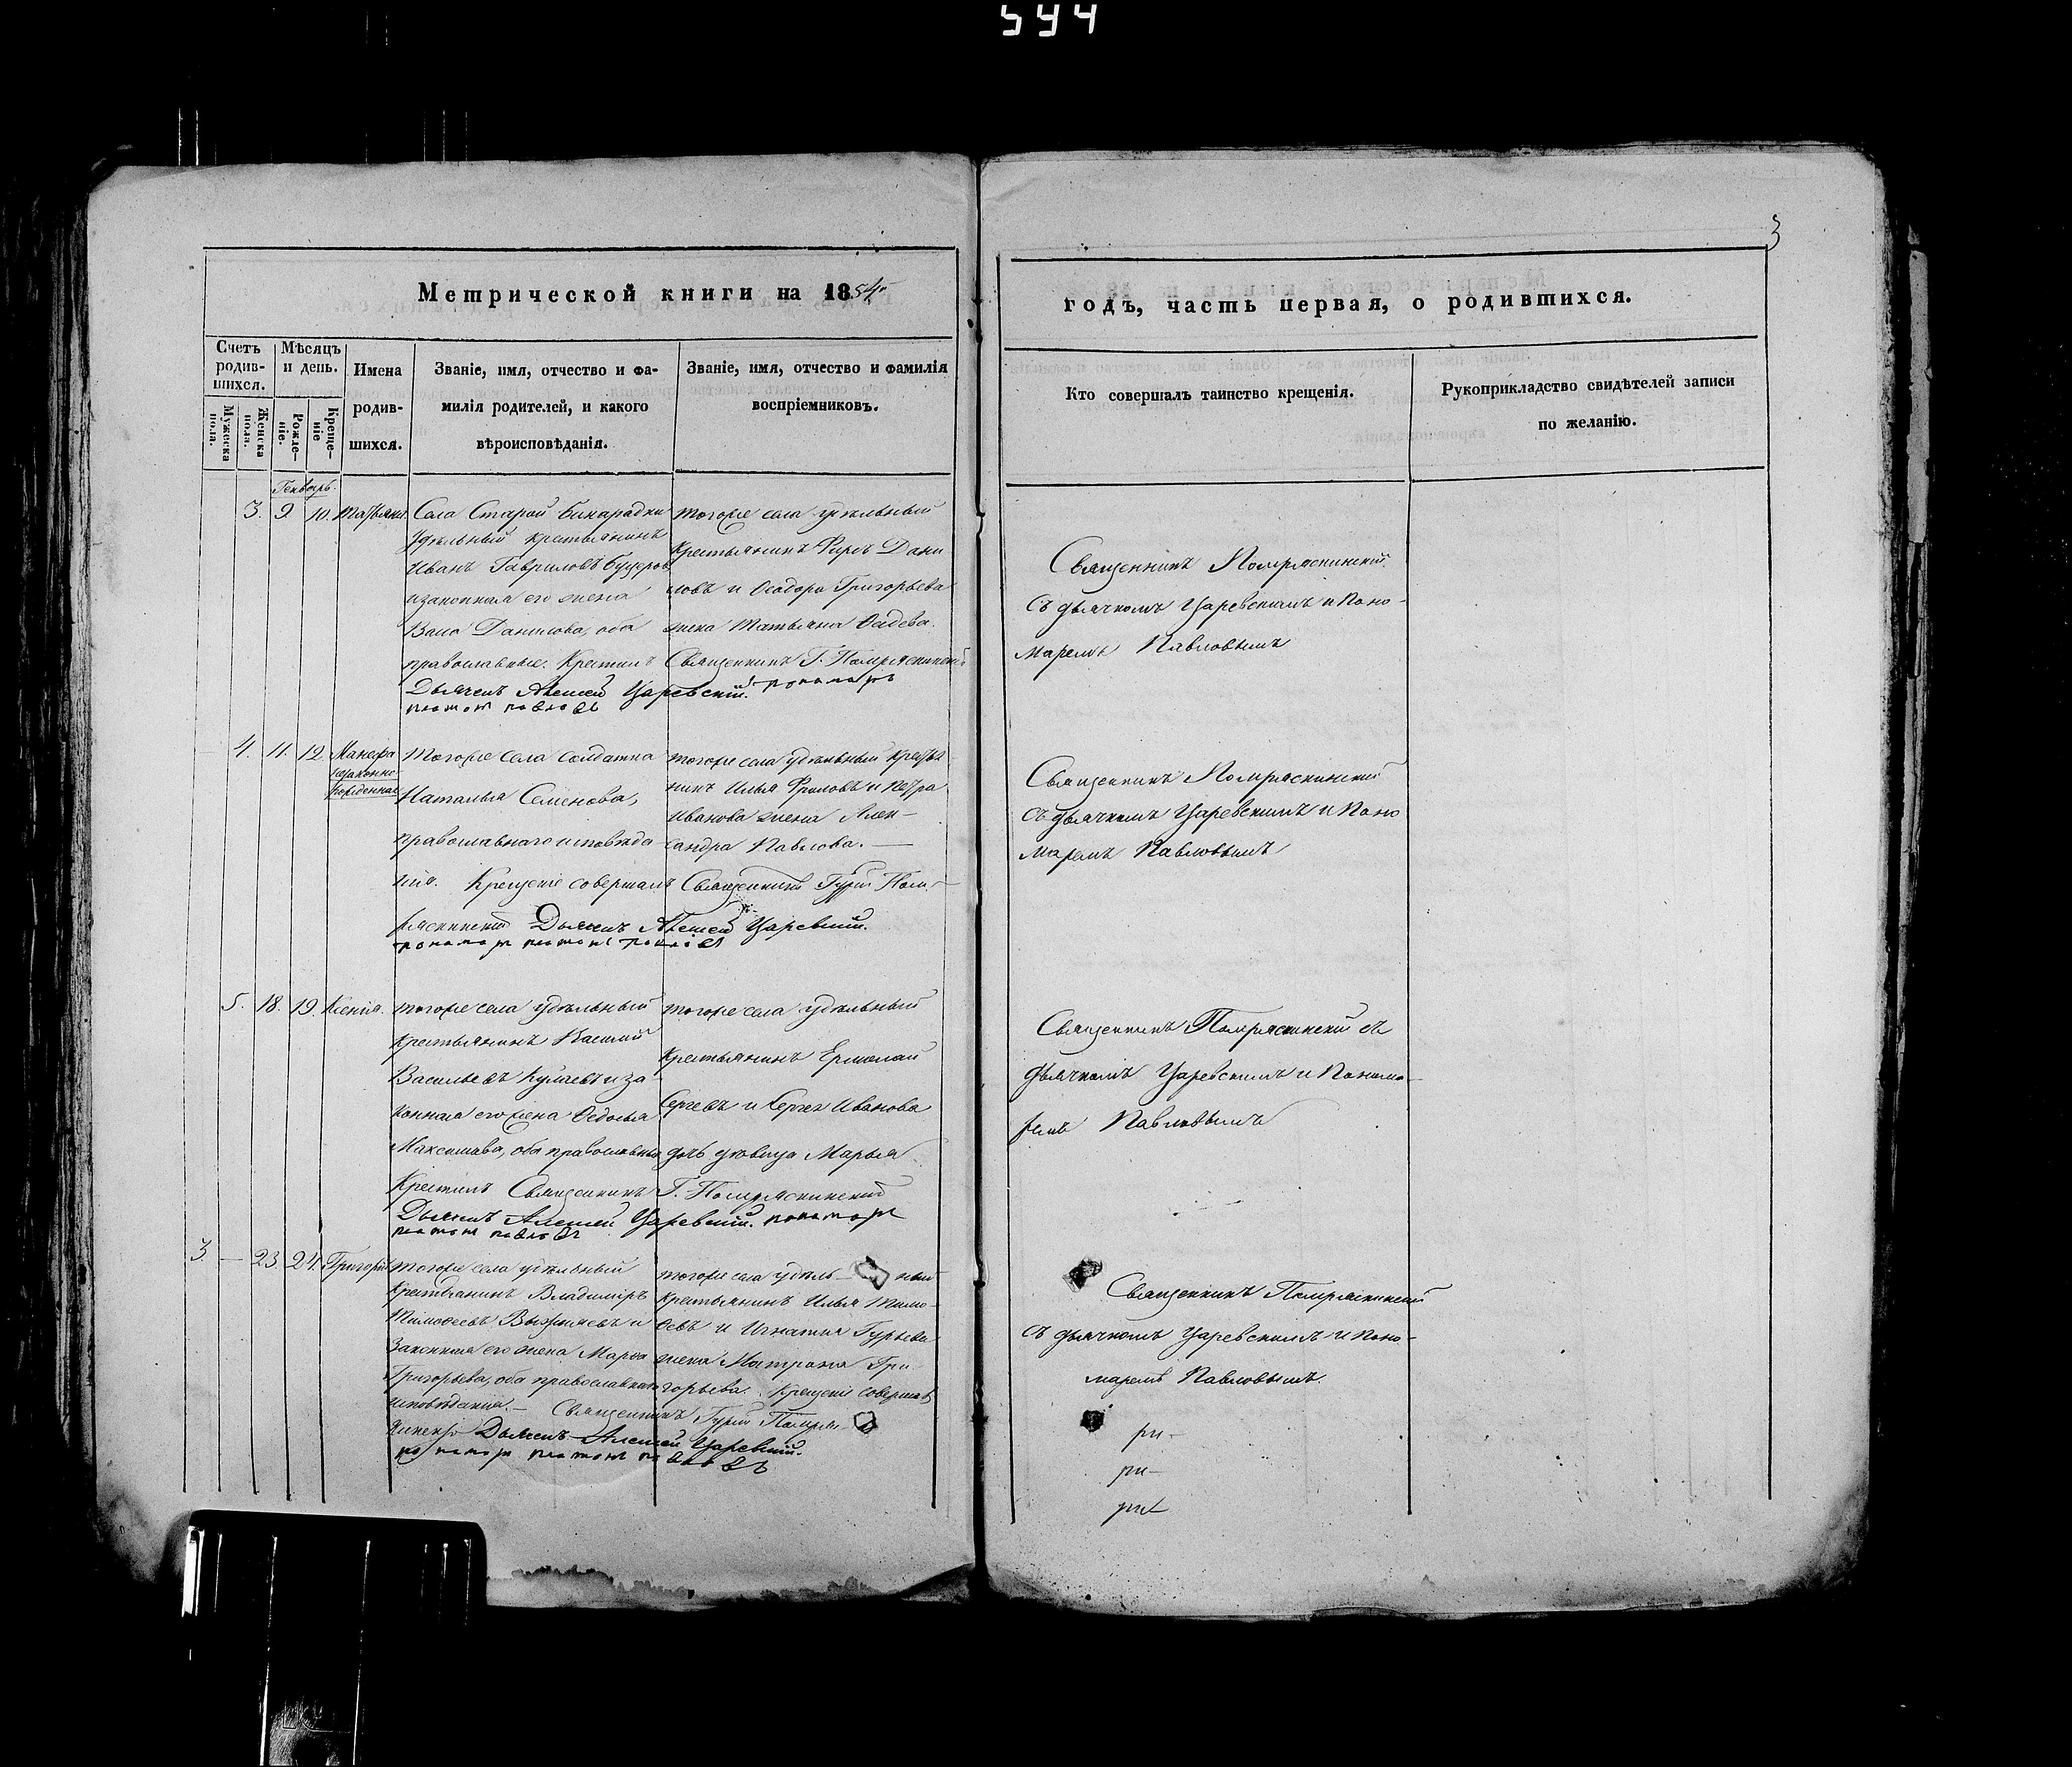 544
3
Метрической книги на 1854
годъ, часть первая, о родившихся.
Счетъ родив-шихся.
Мѣсяцъ и день.
Имена родив-шихся.
Званіе, имя, отчество и фа-
милія родителей, и какого
вѣроисповѣданія.
Званіе, имя, отчество и фамилія
воспріемниковъ.
Мужеска пола.
Женска пола.
Рожде-ніе.
Креще-ніе
Кто совершалъ таинство крещенія.
Рукоприкладство свидѣтелей записи
по желанію.
Генварь.
3. 9 10. Татьяна
Села Старой Бинарадки
Удѣльный крестьянинъ
Иванъ Гавриловъ
и законная его жена
Данилова, оба
православные. Крестилъ Священникъ Г. Помряскинскій
Дьячекъ Алексей Царевскій. пономарь
платон павловъ
тогоже села удѣльный
Крестьянинъ Фирсъ Дани
ловъ и Ѳеодора Григорьева
жена Татьяна Фадеева.
Священникъ Помряскинскій
съ дьячкомъ Царевскимъ и Поно-
маремъ Павловымъ
4. 11. 12. Манефа
незаконно
рожденная
Тогоже села солдатка
Наталья Семенова,
православнаго исповѣда
нія. Крещеніе совершалъ Священникъ Гурій Пом-
ряскинскій Дьячекъ Алексей Царевскій.
пономарь платон павловъ
тогоже села удѣльный крестья
нинъ Илья Фроловъ и Петра
Иванова жена Алек-
сандра Павлова.
Священникъ Помряскинскій
съ дьячкомъ Царевскимъ и Поно
маремъ Павловымъ
5. 18. 19. Ксенія.
тогоже села удѣльный
крестьянинъ Василій
Васильевъ Кулаевъ и за-
конная его жена Ѳедосья
Максимова, оба православные
Крестилъ Священникъ Г. Помряскинскій
Дьячекъ Алексей Царевскій. пономарь
платон павловъ
тогоже села удѣльный
Крестьянинъ Ермолай
Сергеевъ и Сергея Иванова
дочь дѣвица Марья
Священникъ Помряскинскій съ
дьячкомъ Царевскимъ и Понома-
ремъ Павловымъ
3. — 23. 24. Григорій
тогоже села удѣльный
Крестьянинъ Владимиръ
Тимофеевъ и
Законная его жена Марфа
Григорьева, оба православнаго
исповѣданія. — Священникъ Гурій Помряс-
кинскій Дьячекъ Алексей Царевскій.
пономарь платон павловъ
тогоже села удѣль-ный
крестьянинъ Илья Тимо-
феевъ и Игнатія Гурьева
жена Матрона Гри-
горьева. Крещеніе совершалъ
Священникъ Помряскинскій
съ дьячкомъ Царевскимъ и Поно-
маремъ Павловымъ.